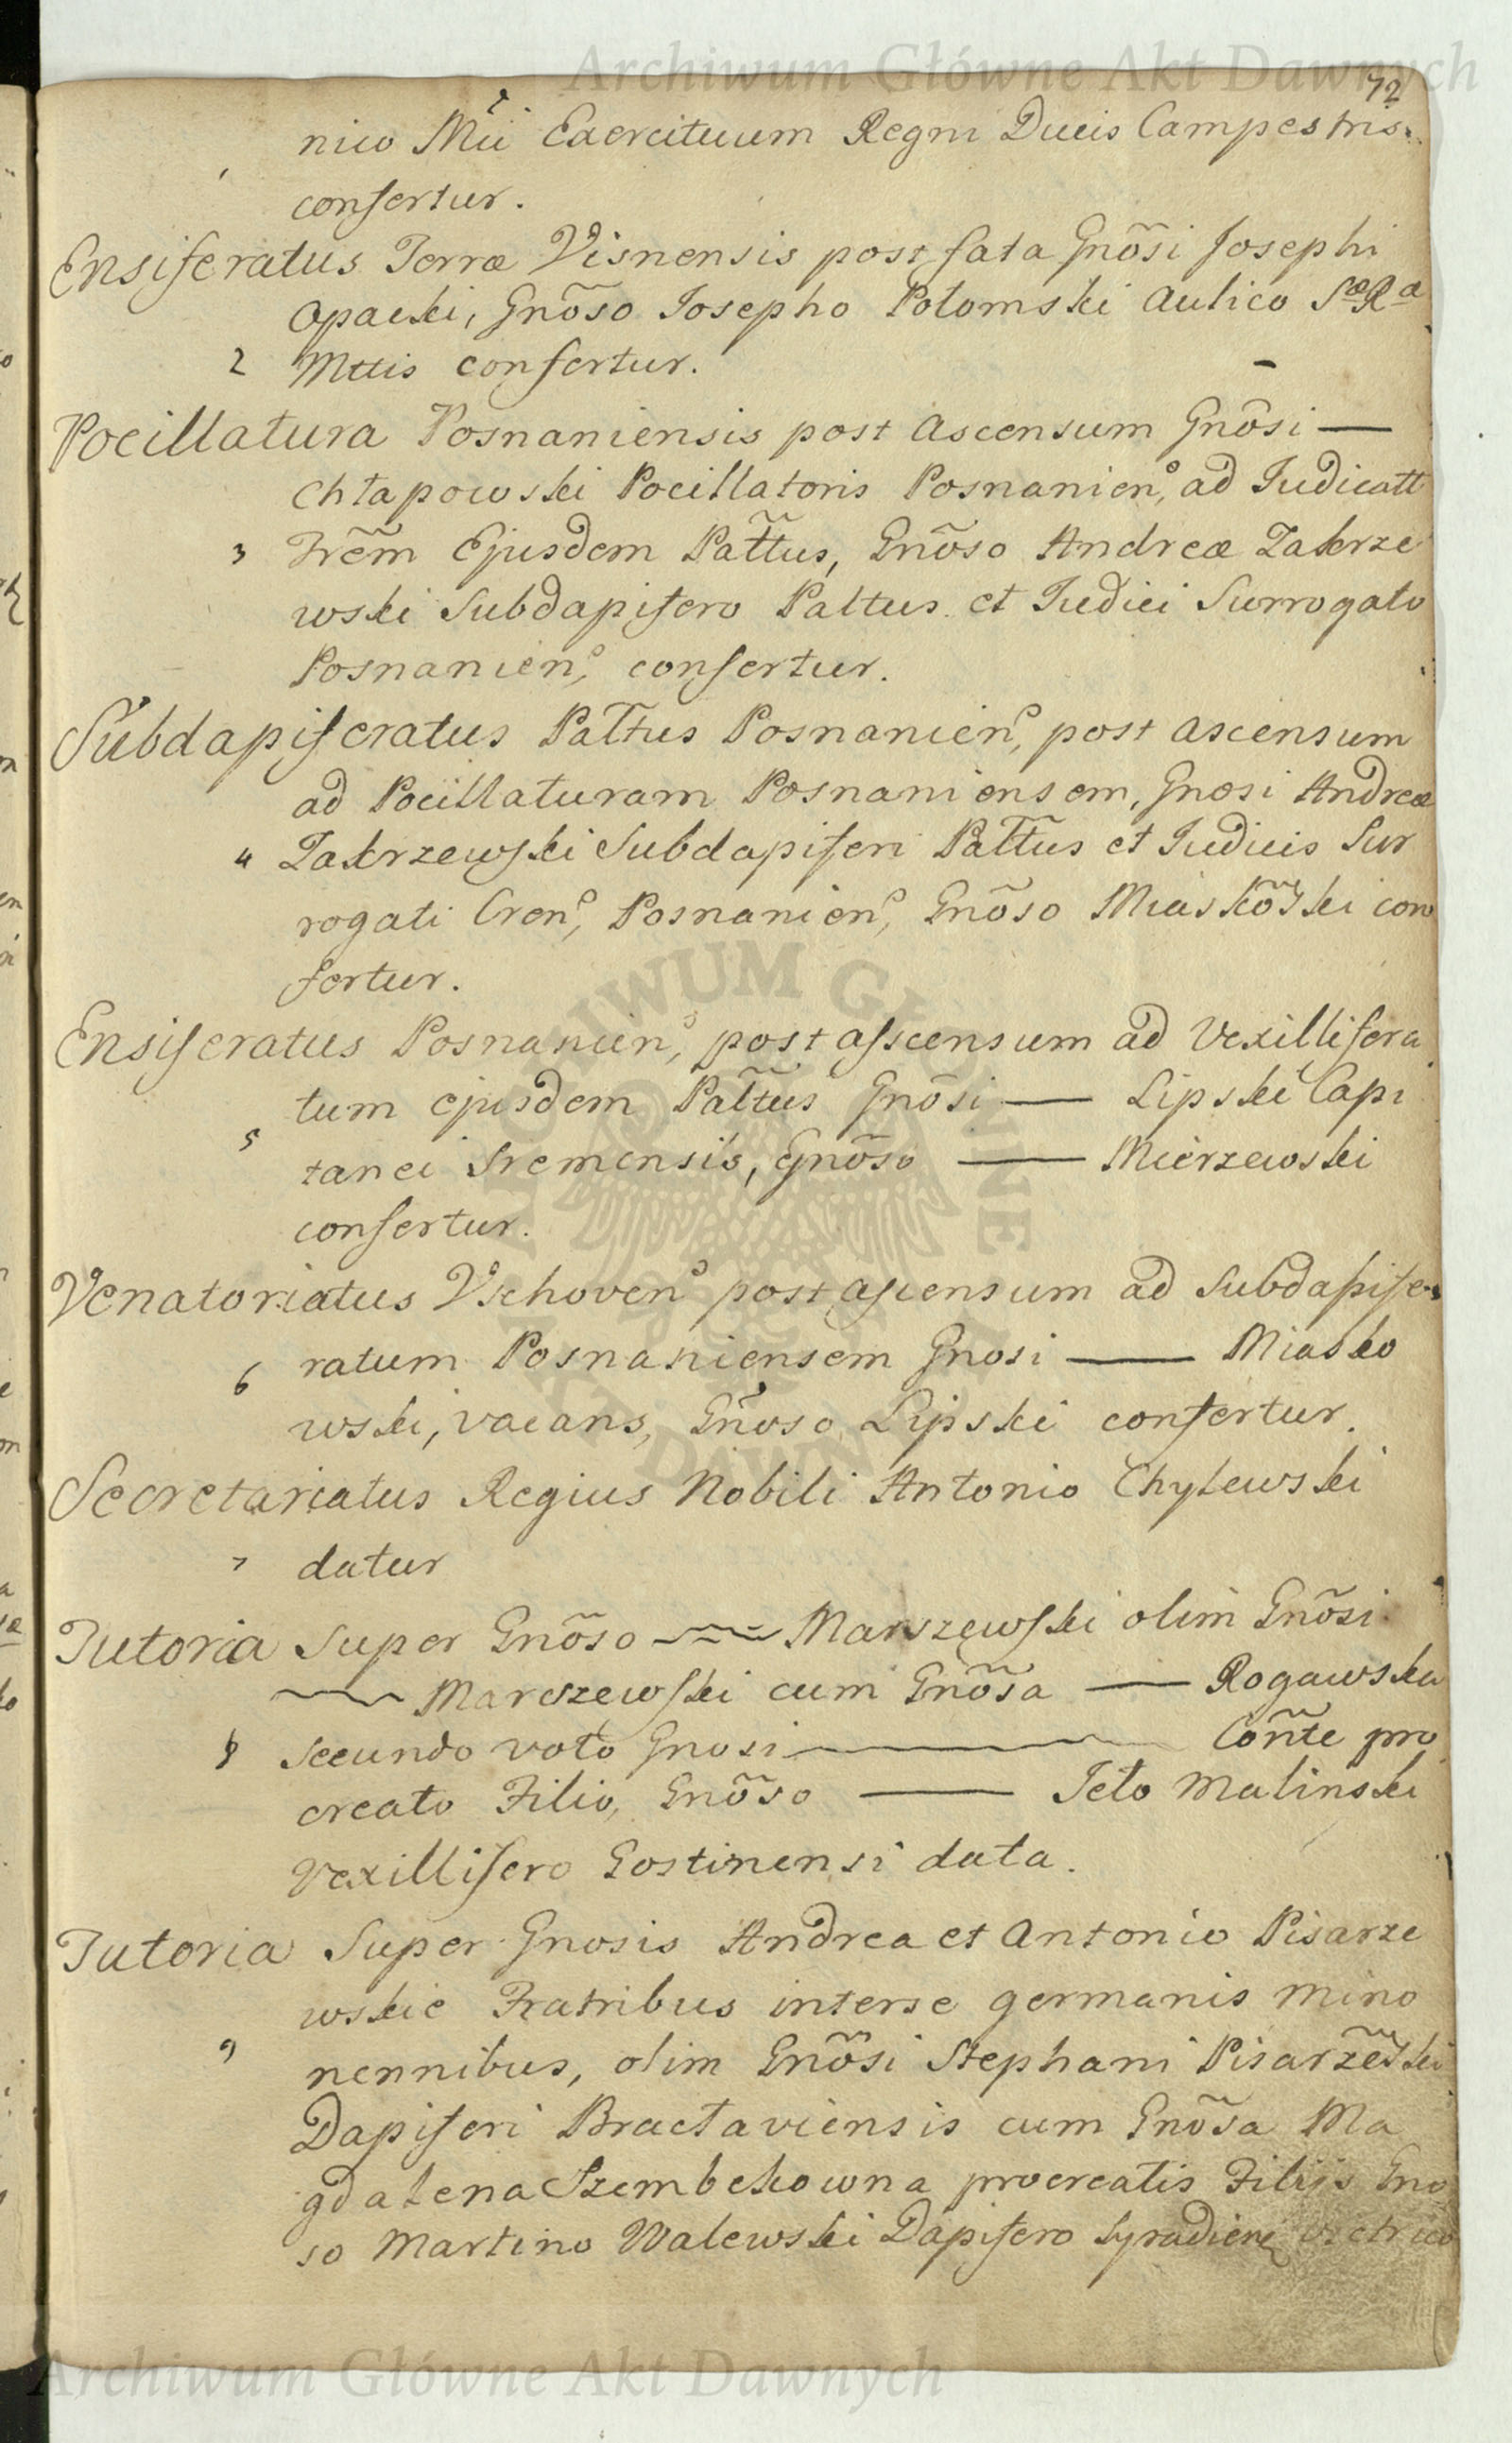 Archiwum Główne Akt Dawnych
72
nico Mii Exercituum Regni Ducis Campestris
confertur.
Ensiferatus Terræ Visnensis post fata Gnõsi Josephi
Opacki, Gnõso Josepho Potomski Aulico Sæ Ra
2 Mttis confertur.
Pocillatura Posnaniensis post Ascensum Gnõsi —
Chłapowski Pocillatoris Posnanien, ad Judicatt
3 Trem Ejusdem Pattus, Gnõso Andreæ Zakrze
wski Subdapifero Paltus et Judici Surrogato
Posnanien, confertur.
Subdapiferatus Paltus Posnanien, post ascensum
ad Pocillaturam Posnaniensem, Gnosi Andreæ
4 Zakrzewski Subdapiferi Pattus et Judicis Sur
rogati Cren, Posnanien, Gnõso Miaskõski con
fertur.
Ensiferatus Posnanien, post assensum ad Vexillifera
tum ejusdem Paltus Gnõsi — Lipski Capi
5 tanei Sremensis, Gnõso — Mierzewski
confertur.
Venatoriatus Vschoven post ascensum ad Subdapife
6 ratum Posnaniensem Gnosi — Miasko
wski, vacans, Gnõso Lipski confertur.
Secretariatus Regius Nobili Antonio Chylewski
7 datur
Tutoria Super Gnõso — Marszewski olim Gnõsi
— Marszewski cum Gnõsa — Rogawska
8 secundo voto Gnosi — Coñte pro
creato Filio, Gnõso — Jeło Malinski
Vexillifero Gostinensi data.
Tutoria Super Gnosis Andrea et Antonio Pisarze
wskie Fratribus interse germanis mino
9 nennibus, olim Gnõsi Stephani Pisarzẽski
Dapiferi Bractaviensis cum Gnõsa Ma
gdalena Szembekowna procreatis Filijs Gno
so Martino Walewski Dapifero Syradien
ARCHIWUM GŁÓWNE AKT DAWNYCH
Archiwum Główne Akt Dawnych